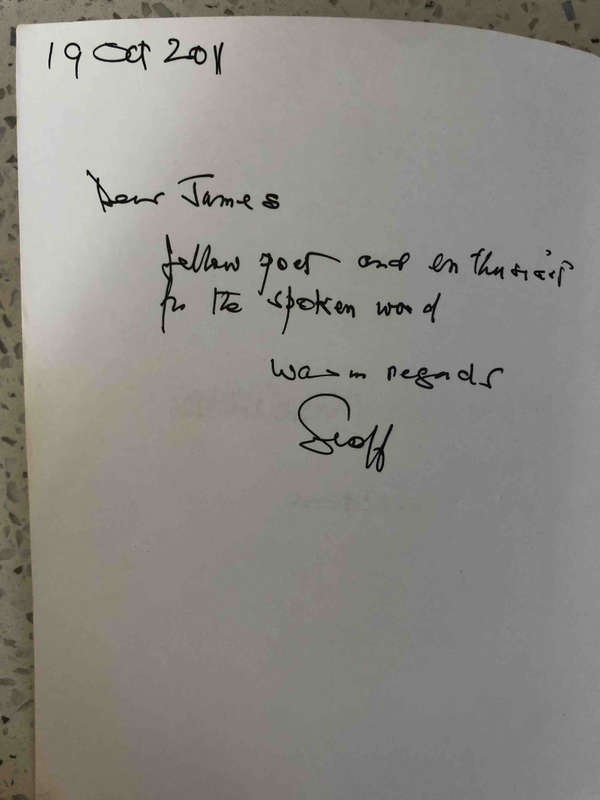 19 Oct 2011
Dear James
fellow poet and enthusiast
for the spoken word
warm regards
Geoff